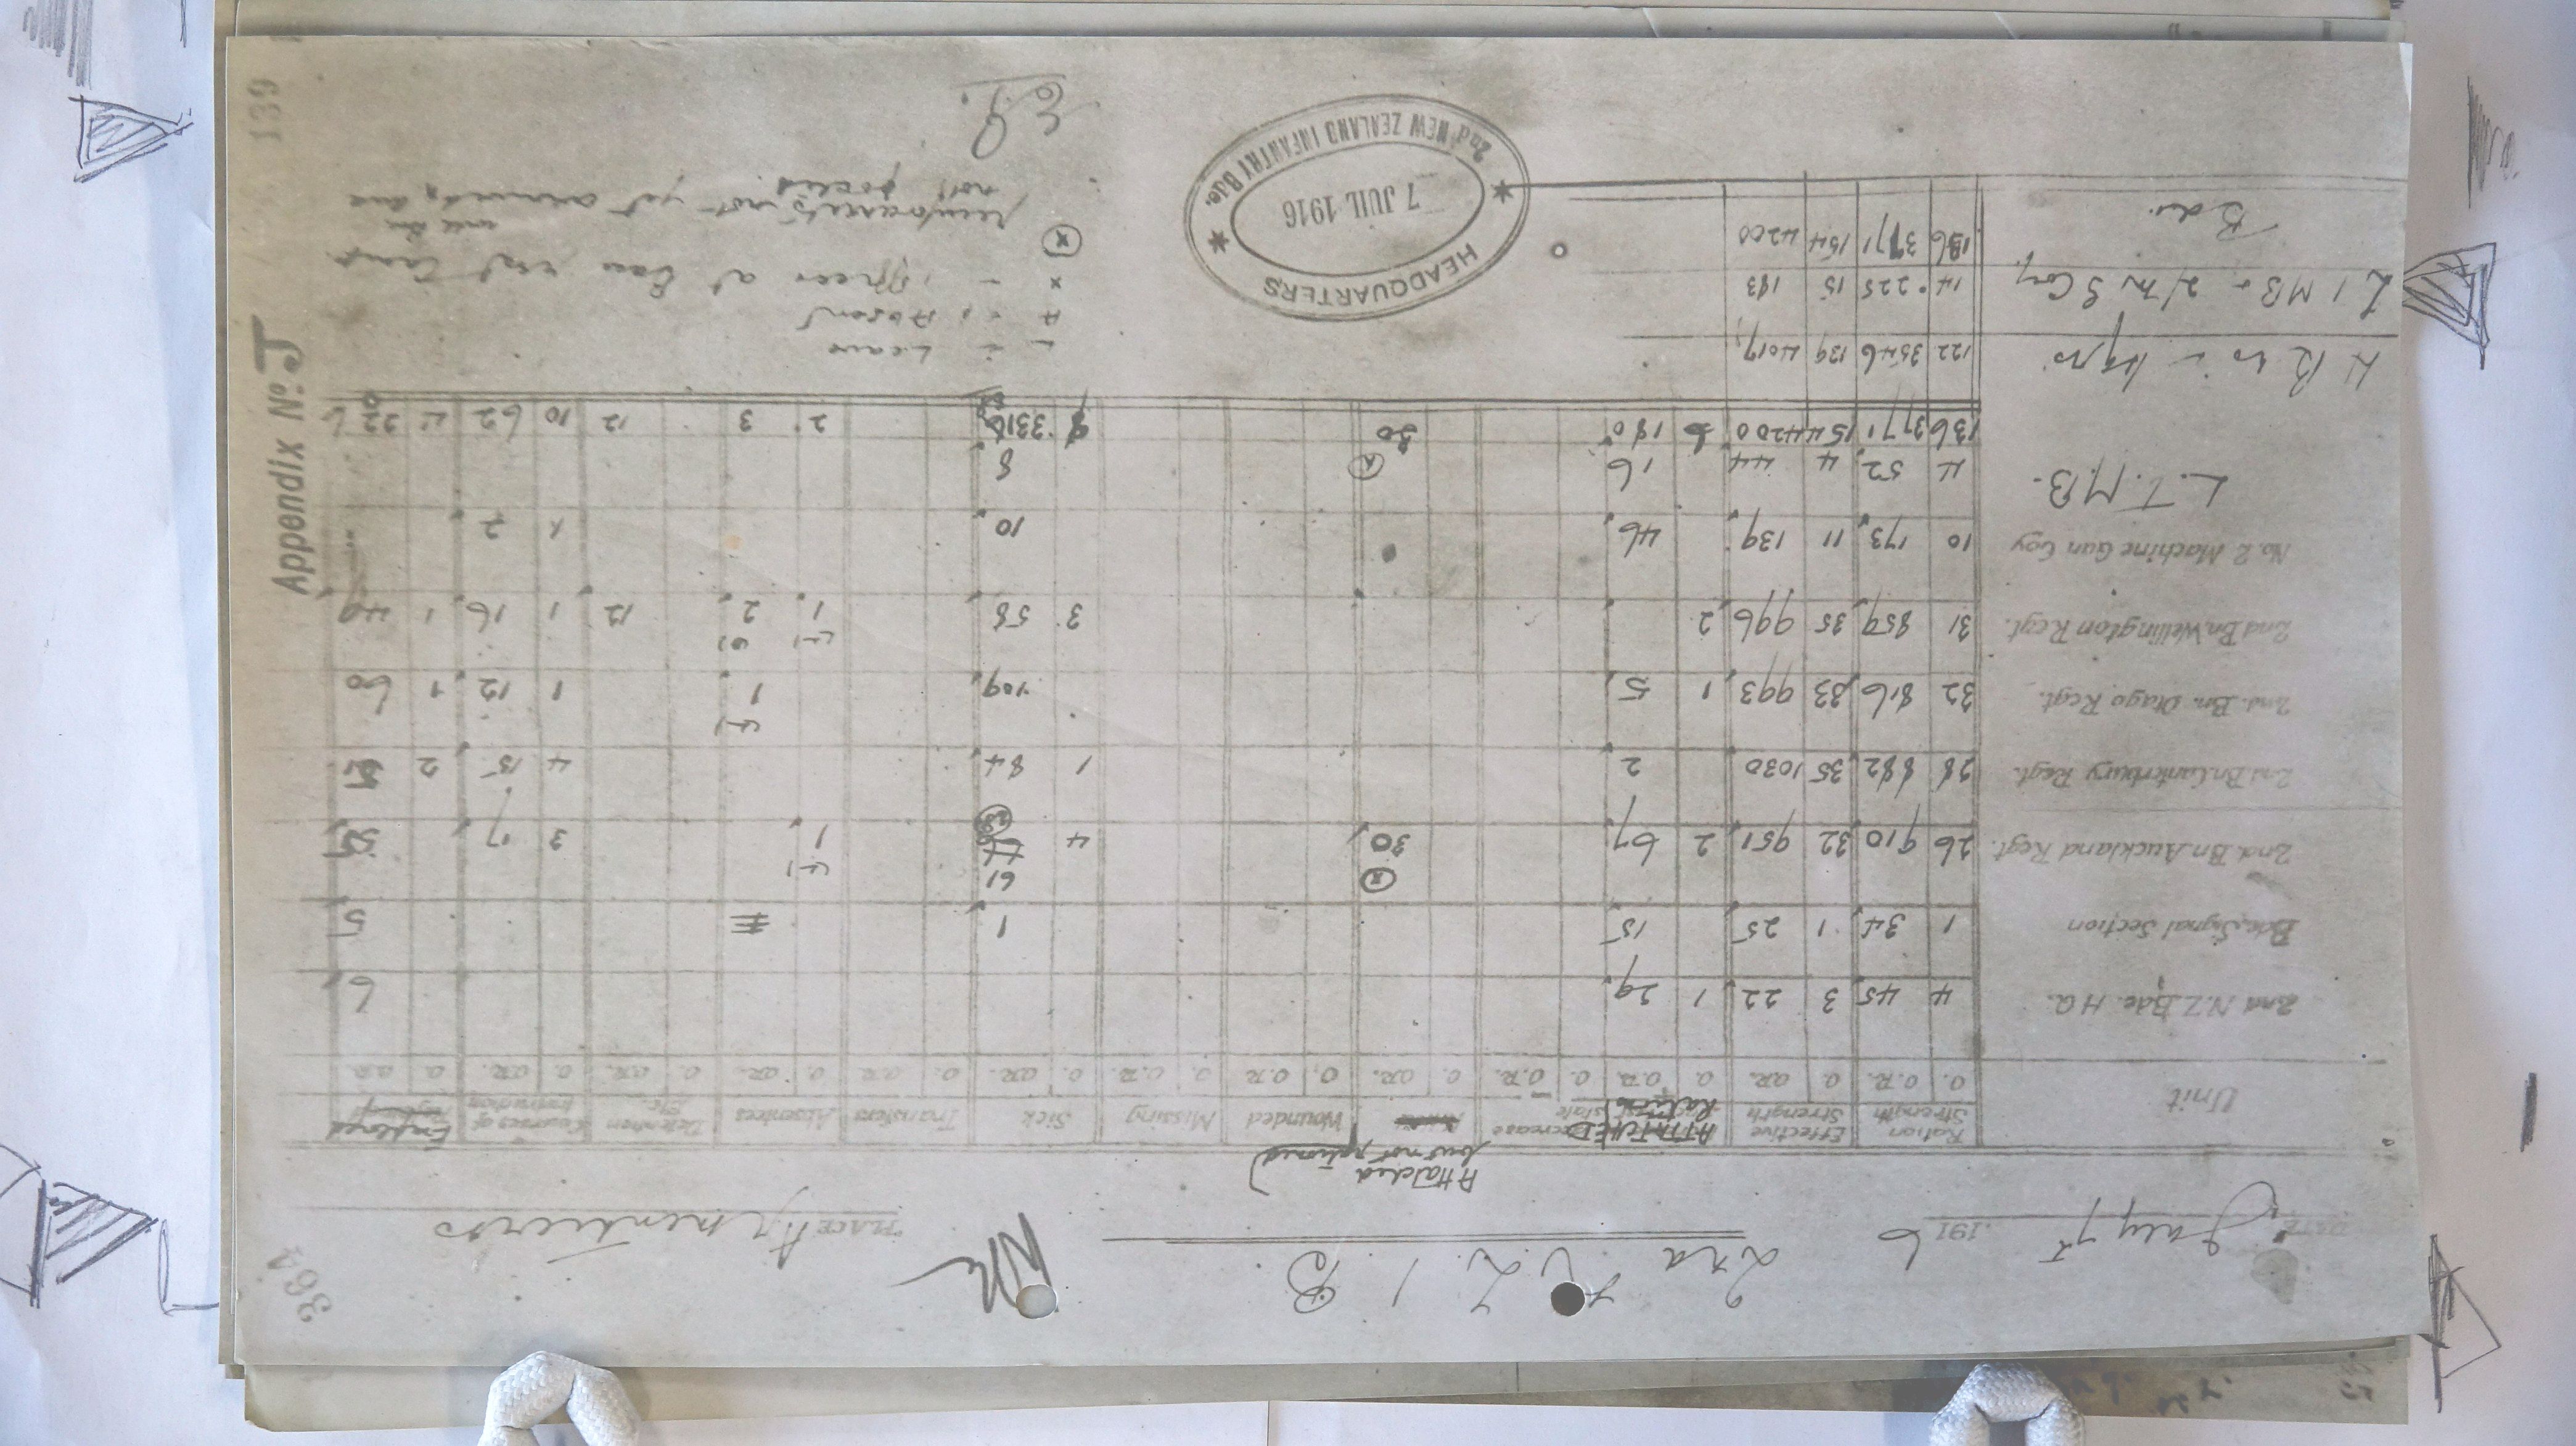 364
DATE July 7th 1916
2nd N.Z.I.B.
PLACE Armentieres
Attached but not rationed
Unit
Ration Strength
Effective Strength
ATTATCHED Rations
Decrease
Wounded
Missing
Sick
Transfers
Absences
Detention Etc.
Courses of Instruction
Employed
O. O.R. O. O.R. O. O.R. O. O.R. O. O.R. O. O.R. O. O.R. O. O.R. O. O.R. O. O.R. O. O.R. O. O.R. O. O.R.
2nd N.Z. Bde. H.Q. 4 45 3 22 1 29 6
Bde. Signal Section 1 34 1 25 15 1 5
2nd. Bn. Auckland Regt. 26 910 32 951 2 67 (x) 30 4 61 (-) 1 3 7 55
2nd. Bn. Canterbury Regt. 28 882 35 1030 2 1 84 4 15 2 51
2nd. Bn. Otago Regt. 32 816 33 993 1 5 109 (-) 1 1 12 1 60
2nd. Bn. Wellington Regt. 31 859 35 996 2 3 58 (-) 1 2 12 1 16 1 49
No. 2 Machine Gun Coy 10 173 11 139 46 10 1 2
L.T.M.B. 4 52 4 44 16 8
136 3771 154 4200 6 180 (x) 30 2 3 12 10 62
122 3546 139 4017
14 225 15 183
136 3771 154 4200
Bde.
- = Leave
x - Officer at Bde rest Camp
(x) reinforcets not yet armed, and
not posted.
HEADQUARTERS
7 JUIL 1916
2nd NEW ZEALAND INFANTRY Bde.
Appendix No. J
139